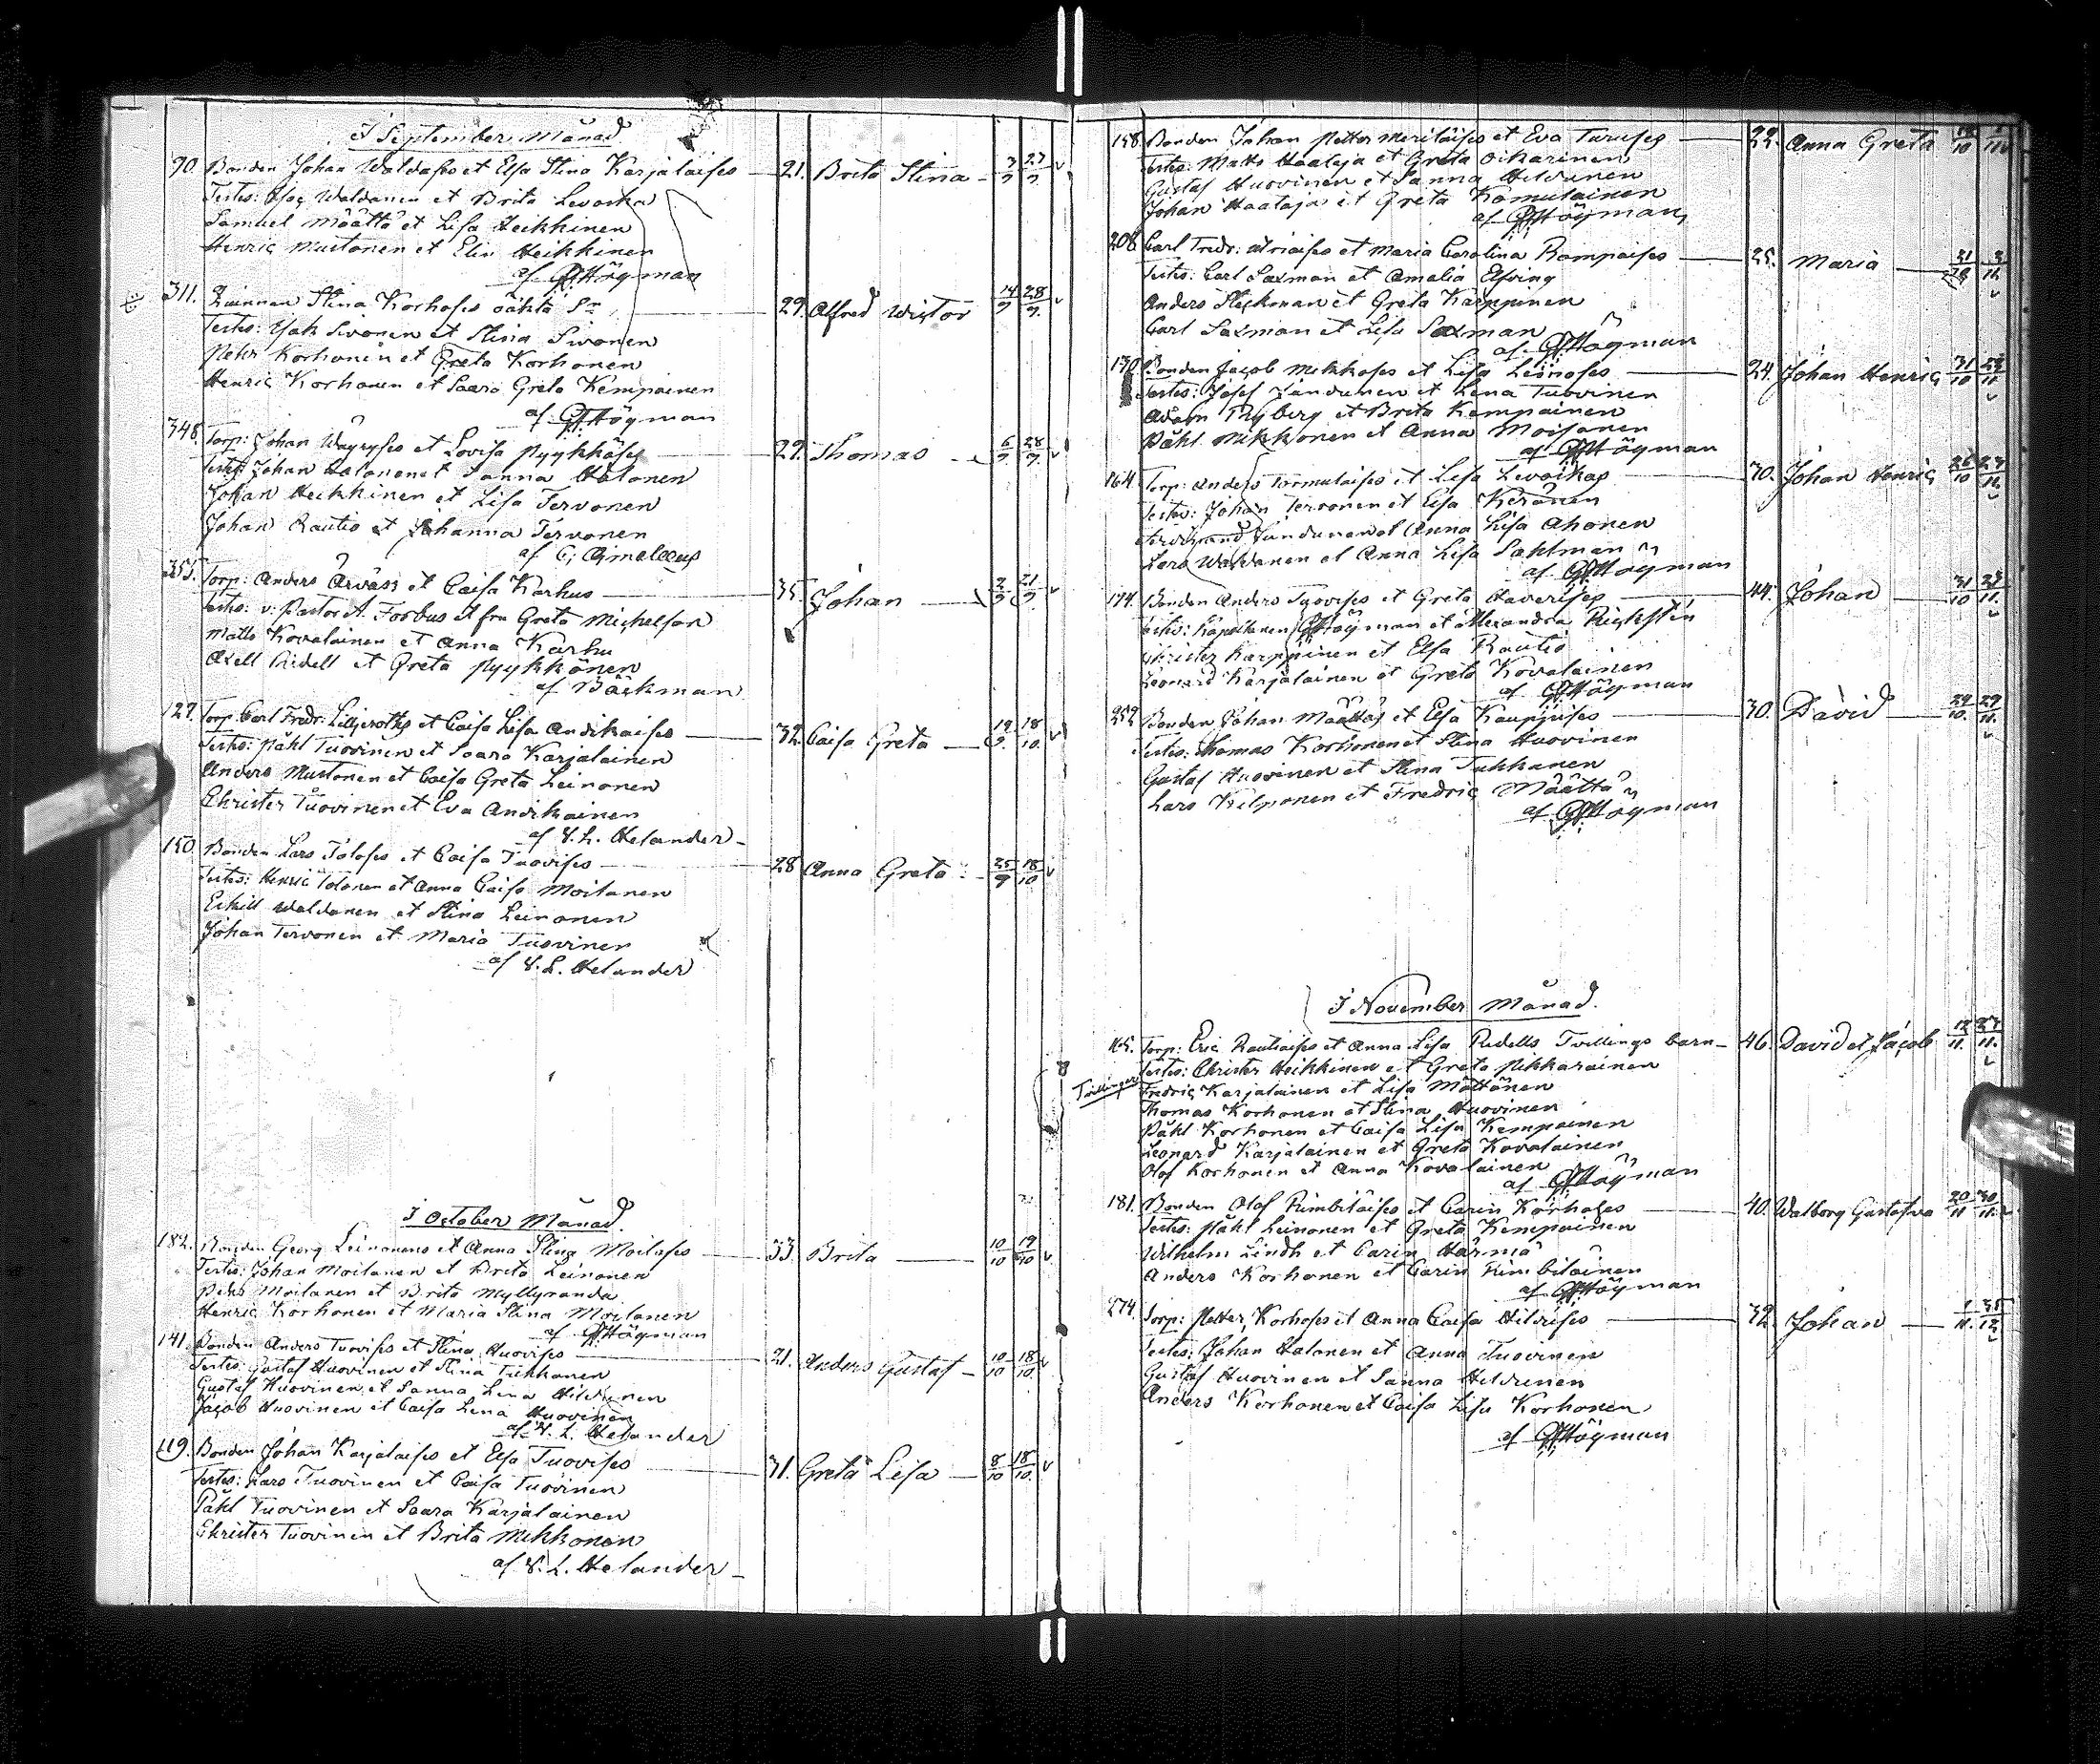 I September Månad
90. Bonden Johan Waldases et Elsa Stina Karjalaises 21. Brita Stina 3/9 27/9
Testes: Waldanen et Brita Levoska
Samuel Määttä et Lisa Heikkinen
Henric Mustonen et Elin Heikkinen
af Högman
311. Qvinnan Stina Korhoses oäkta Sn 29. Alfred Wictor 14/9 28/9
Testes: Isak Sivonen et Stina Sivonen
Pehr Korhonen et Greta Korhonen
Henric Korhonen et Saara Greta Kempainen
af Högman
348. Torp: Johan et Lovisa Pyykköses 29. Thomas 6/9 28/9
Testes: Johan Halonen et Sanna Halonen
Johan Heikkinen et Lisa Tervonen
Johan Rautio et Johanna Tervonen
af C: Ajmelaeus
355. Torp: Anders et Caisa Karhus 35. Johan 2/9 21/9
Testes: v: Pastor A. Forbus et fru Greta Michelson
Matts Kovalainen et Anna Karhu
Axell Ridell et Greta Pyykkönen
af Bäckman
127. Torp: Carl Fredr: Liljeroths et Caisa Lisa Andikaises 32. Caisa Greta 12/9 18/10
Testes: Påhl Tuovinen et Saara Karjalainen
Anders Mustonen et Caisa Greta Leinonen
Christer Tuovinen et Eva Andikainen
af V. L. Helander
150. Bonden Lars Toloses et Caisa Tuovises 28 Anna Greta 25/9 18/10
Testes: Henric Tolonen et Anna Caisa Moilanen
Eskill Waldanen et Stina Leinonen
Johan Tervonen et Maria Tuovinen
af V. L. Helander
I October Månad.
182. Bonden Georg Leinonens et Anna Stina Moilases 33. Brita 10/10 19/10
Testes: Johan Moilanen et Brita Leinonen
Pehr Moilanen et Brita Myllyranda
Henric Korhonen et Maria Stina Moilanen
af Högman
141. Bonden Anders Tuovises et Stina Huovises 21. Anders Gustaf 10/10 18/10
Testes: Gustaf Huovinen et Stina Tukkanen
Gustaf Huovinen et Sanna Lena Hildunen
Jacob Huovinen et Caisa Lena Huovinen
af V. L. Helander
119. Bonden Johan Karjalaises et Elsa Tuovises 31. Greta Lisa 8/10 18/10
Testes: Lars Tuovinen et Caisa Tuovinen
Påhl Tuovinen et Saara Karjalainen
Christer Tuovinen et Brita Mikkonen
af V. L. Helander
158. Bonden Johan Petter Meriläises et Eva Turuses 22. Anna Greta
Testes: Matts Haataja et Greta Oikarinen
Gustaf Huovinen et Sanna Hildunen
Johan Haataja et Greta Komulainen
af Högman
208. Carl Fredr: et Maria Carolina Rompaises 25. Maria
Testes: Carl Saxman et Amalia Elfving
Anders Fleckman et Greta Karppinen
Carl Saxman et Lisa Saxman
af Högman
130. Bonden Jacob Mikkoses et Lisa Leinoses 24. Johan Henric 31/10
Testes: Josef Jändunen et Lena Tuovinen
Adam Ryberg et Brita Kempainen
Påhl Mikkonen et Anna Moisanen
af Högman
164. Torp: Anders Tormulaises et Lisa Levoskas 30. Johan Henric
Testes: Johan Tervonen et Elsa Keränen
Ferdinand Jändunen et Anna Lisa Ahonen
Lars Waldanen et Anna Lisa Sahlman
af Högman
174. Bonden Anders Tuovises et Greta Haverises 44. Johan 31/10
Testes: Kapellanen Högman et Alexandra
Christer Karppinen et Elsa Rautio
Leonard Karjalainen et Greta Kovalainen
af Högman
252. Bonden Johan Määttäs et Elsa Kauppises 30. David 29/10 29/11
Testes: Thomas Korhonen et Stina Huovinen
Gustaf Huovinen et Stina Tukkanen
Lars Kilponen et Fredric Määttä
af Högman
I November Månad.
165. Torp: Eric Rautiaises et Anna Lisa Ridells Tvillings barn 46. David et Jacob 12/11 27/11
Tvillingar
Testes: Christer Heikkinen et Greta Pikkarainen
Fredric Karjalainen et Lisa Möttönen
Thomas Korhonen et Stina Huovinen
Påhl Korhonen et Caisa Lisa Kempainen
Leonard Karjalainen et Greta Kovalainen
Olof Korhonen et Anna Kovalainen
af Högman
181. Bonden Olof Kimbiläises et Carin Korhoses 40. Walborg Gustafva 20/11 30/11
Testes: Påhl Leinonen et Greta Kempainen
Wilhelm Lindh et Carin Härmä
Anders Korhonen et Carin Kimbiläinen
af Högman
274. Torp: Petter Korhoses et Anna Caisa Hildises 32. Johan
Testes: Johan Halonen et Anna Tuovinen
Gustaf Huovinen et Sanna Hildunen
Anders Korhonen et Caisa Lisa Korhonen
af Högman